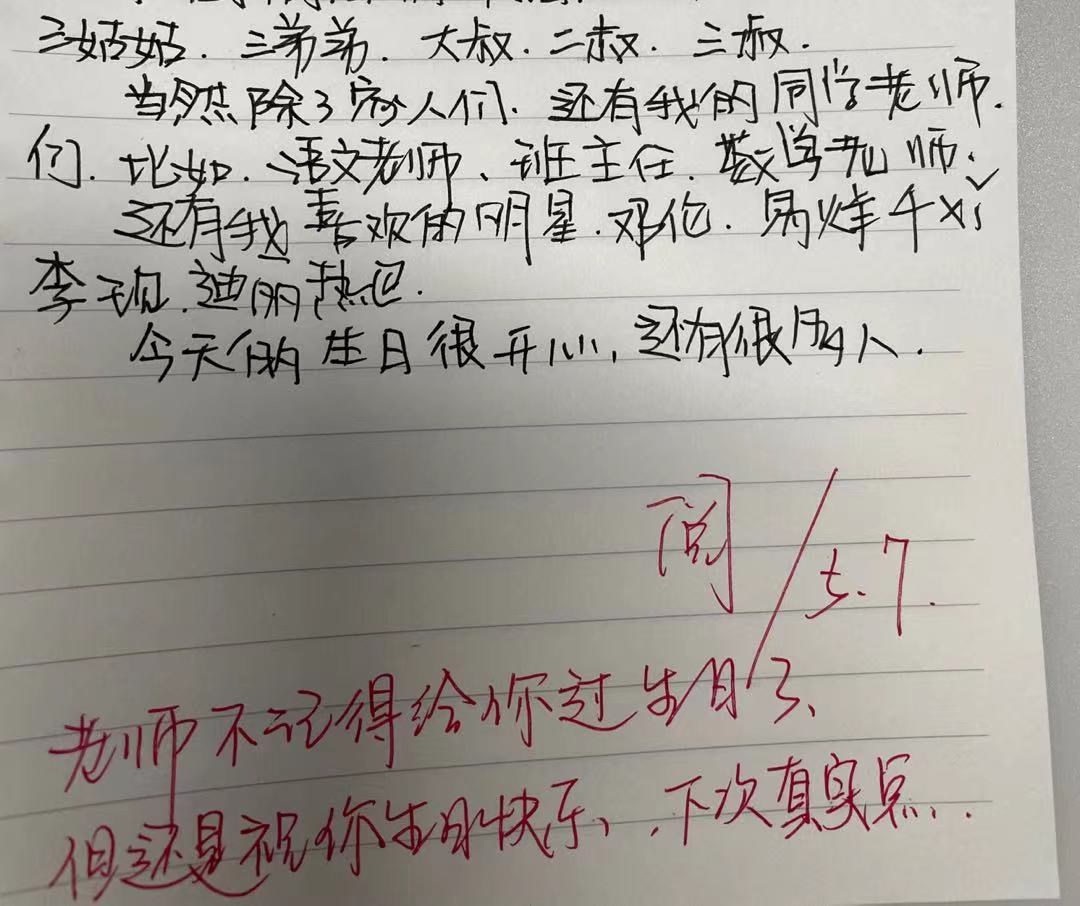 三姑姑.三弟弟.大叔.二叔.三叔.
当然除了家人们.还有我的同学老师.
们.比如.语文老师、班主任.数学老师.
还有我喜欢的明星.邓伦.易烊千玺
李现.迪丽热巴.
今天的生日很开心,还有很多人.
阅 5.7.
老师不记得给你过生日了、
但还是祝你生日快乐、.下次真实点..